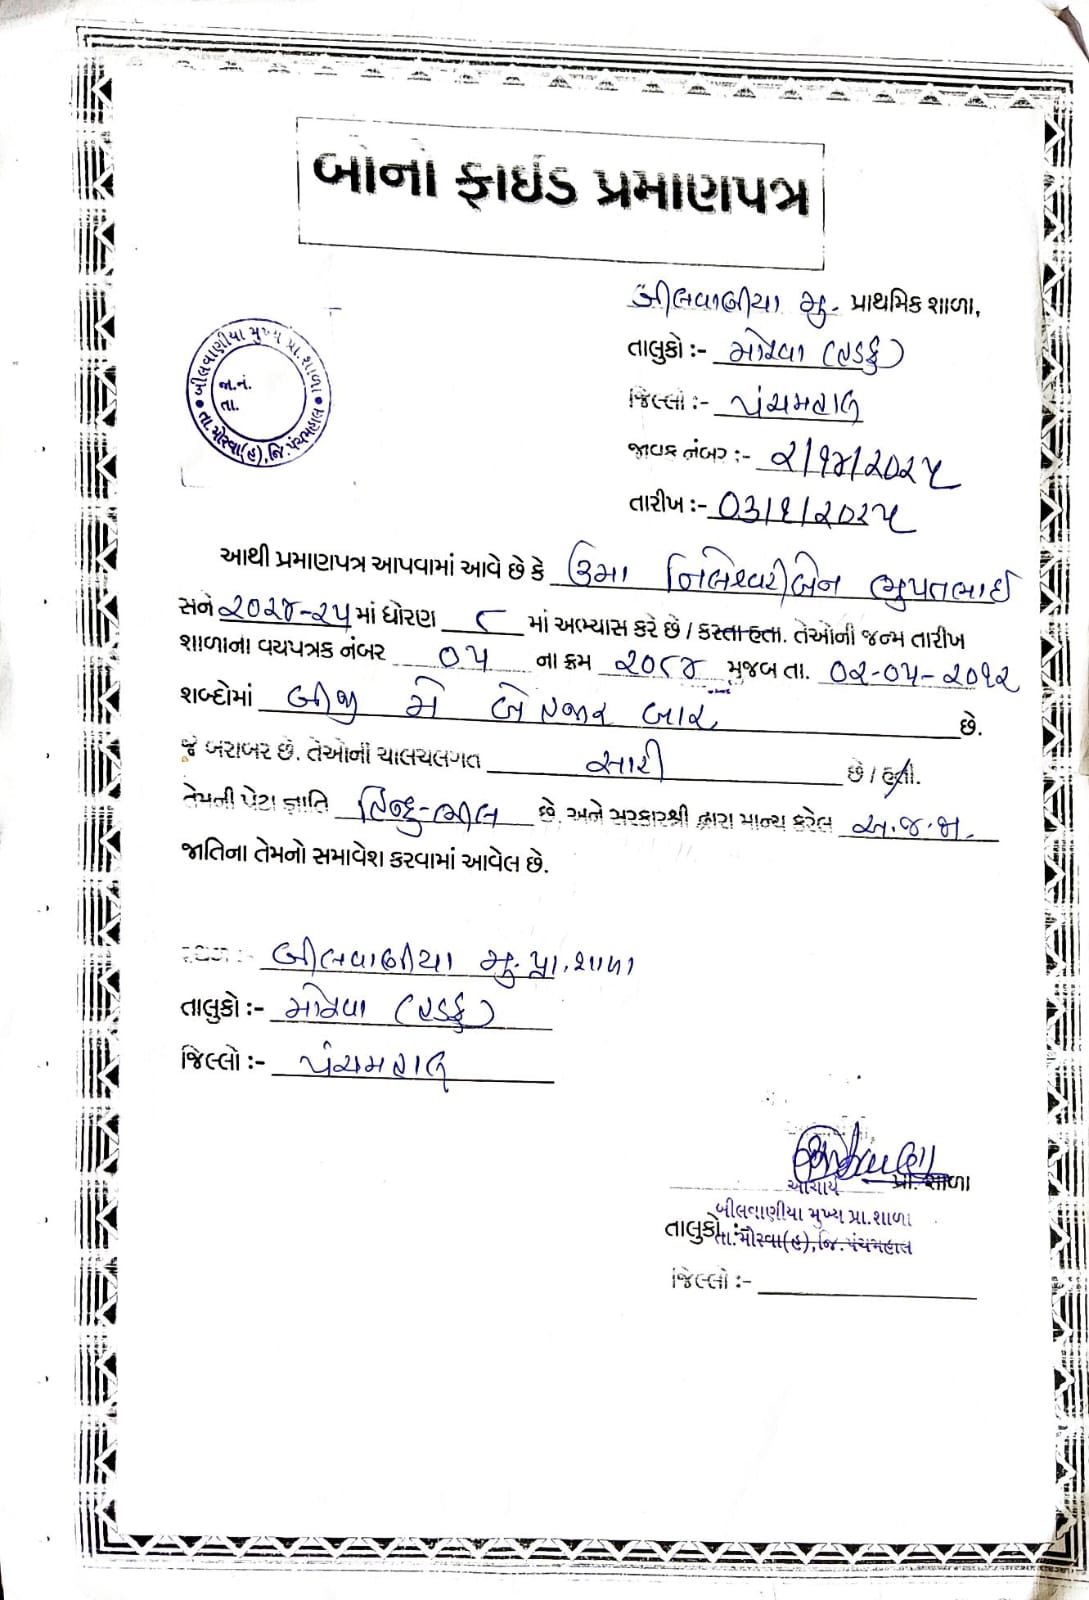 બોનો ફાઇડ પ્રમાણપત્ર
બીલવાણીયા મુ. પ્રાથમિક શાળા,
તાલુકો :- મોરવા (હડફ)
જિલ્લો :- પંચમહાલ
જાવક નંબર :- ૨/૧૪/૨૦૨૫
તારીખ :- ૦૩/૧/૨૦૨૫
બીલવાણીયા મુખ્ય પ્રા.શાળા
જા.નં.
તા.
તા.મોરવા(હ),જિ.પંચમહાલ
આથી પ્રમાણપત્ર આપવામાં આવે છે કે ડામા નિલેશ્વરીબેન ભુપતભાઈ
સને ૨૦૨૪-૨૫ માં ધોરણ ૮ માં અભ્યાસ કરે છે / કરતા હતા. તેઓની જન્મ તારીખ
શાળાના વયપત્રક નંબર ૦૫ ના ક્રમ ૨૦૮૪ મુજબ તા. ૦૨-૦૫-૨૦૧૨
શબ્દોમાં બીજી મે બે હજાર બાર છે.
જે બરાબર છે. તેઓની ચાલચલગત સારી છે / હતી.
તેમની પેટા જ્ઞાતિ હિન્દુ-ભીલ છે. અને સરકારશ્રી દ્વારા માન્ય કરેલ અ.જ.જા.
જાતિના તેમનો સમાવેશ કરવામાં આવેલ છે.
સ્થળ :- બીલવાણીયા મુ. પ્રા. શાળા
તાલુકો :- મોરવા (હડફ)
જિલ્લો :- પંચમહાલ
આચાર્ય પ્રા. શાળા
બીલવાણીયા મુખ્ય પ્રા.શાળા
તાલુકો :-
તા.મોરવા(હ),જિ.પંચમહાલ
જિલ્લો :-